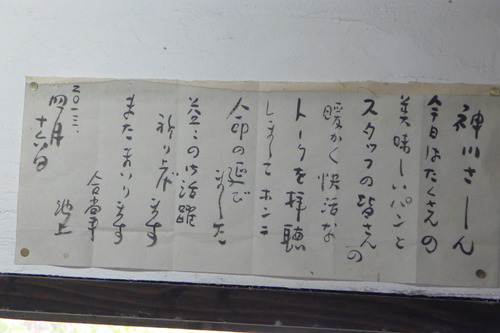 神川さーん
今日はたくさんの
美味しいパンと
スタッフの皆さんの
暖かく快活な
トークを拝聴
しましてホンニ
命の延びました
益々の御活躍
祈り上げます
またまいります
合掌
池上
二〇一三、
四月十六日